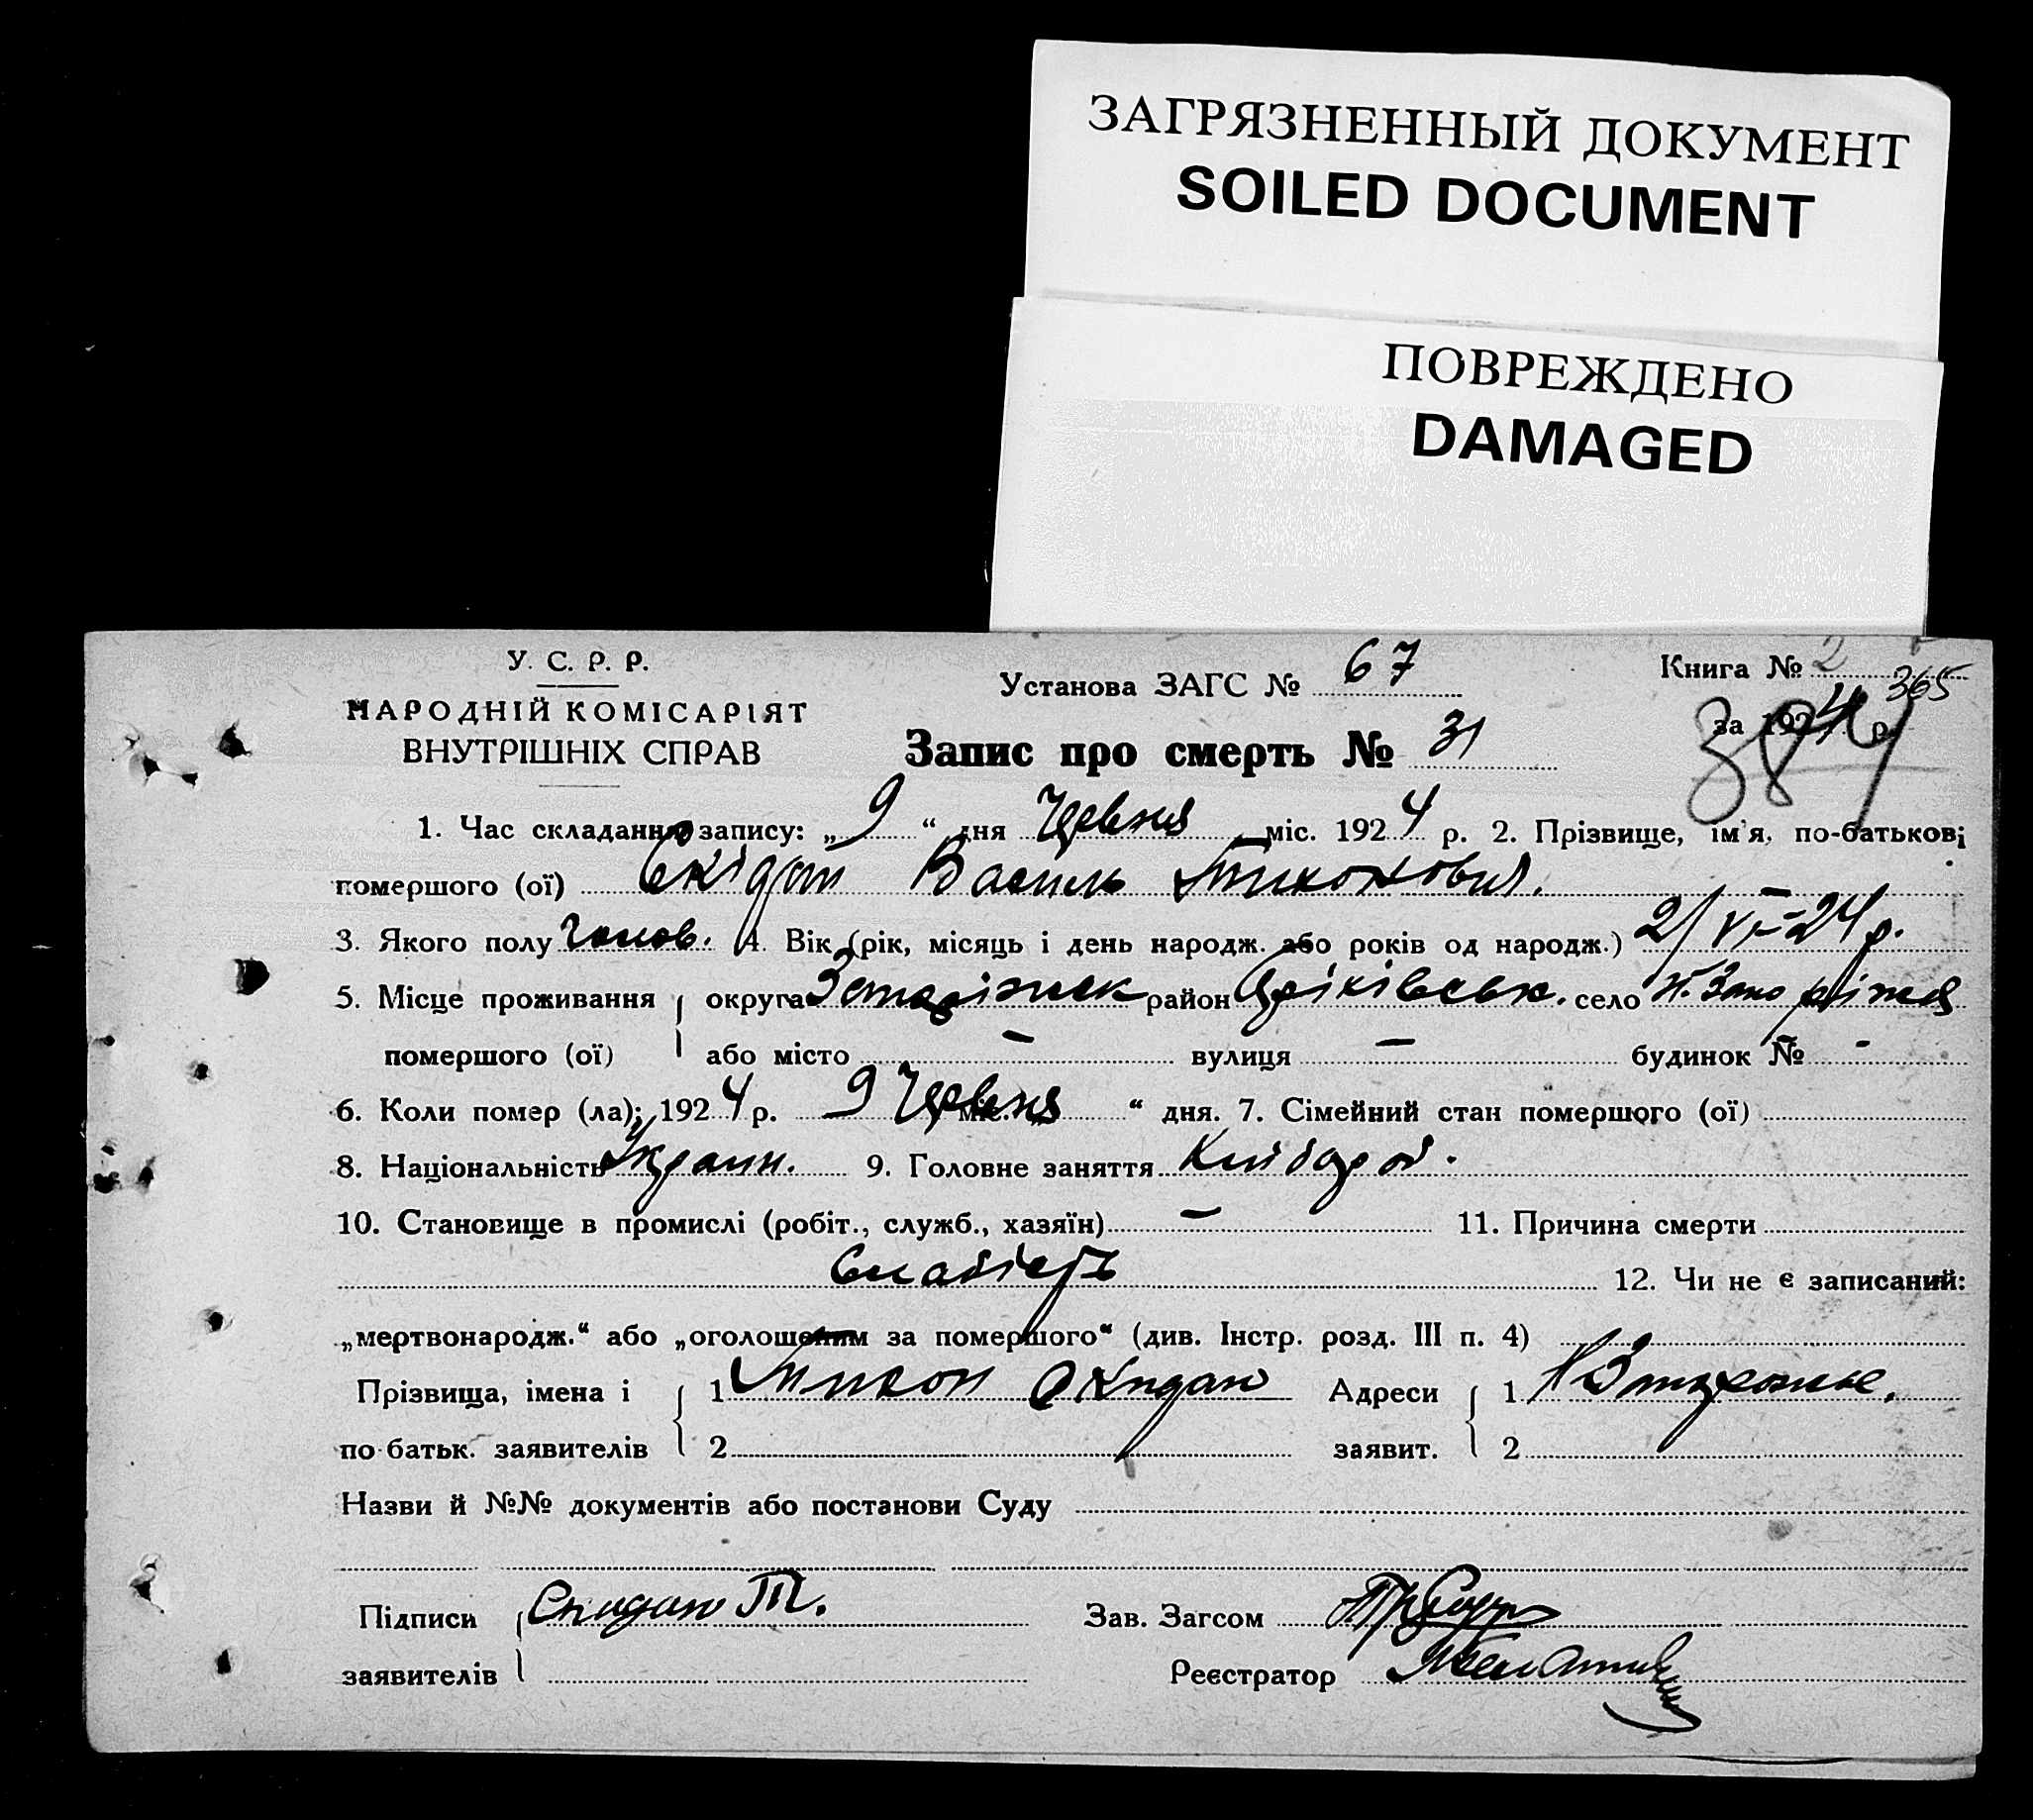 ЗАГРЯЗНЕННЫЙ ДОКУМЕНТ
SOILED DOCUMENT
ПОВРЕЖДЕНО
DAMAGED
У. С. Р. Р.
НАРОДНІЙ КОМІСАРІЯТ
ВНУТРІШНІХ СПРАВ
Установа ЗАГС № 67
Книга № 2
365
за 1924 р.
384
Запис про смерть № 31
1. Час складання запису: „9“ дня Червня міс. 1924 р. 2. Прізвище, ім'я, по-батькові
помершого (ої) Скідан Василь Тихонович.
3. Якого полу чолов. 4. Вік (рік, місяць і день народж. або років од народж.) 2/VI-24 р.
5. Місце проживання округа Запоріжск район Оріхівськ. село Н. Запоріжжя
помершого (ої) або місто – вулиця – будинок № -
6. Коли помер (ла); 1924 р. 9 Червня міс. “ дня. 7. Сімейний стан помершого (ої)
8. Національність Украин. 9. Головне заняття Хлібороб.
10. Становище в промислі (робіт., служб., хазяїн) – 11. Причина смерти
Слабість 12. Чи не є записаний:
„мертвонародж.“ або „оголошеним за помершого“ (див. Інстр. розд. III п. 4)
Прізвища, імена і 1 Тихон Скидан Адреси 1 Н
по батьк. заявителів 2 заявит. 2
Назви й №№ документів або постанови Суду
Підписи Скидан Т. Зав. Загсом
заявителів Реєстратор